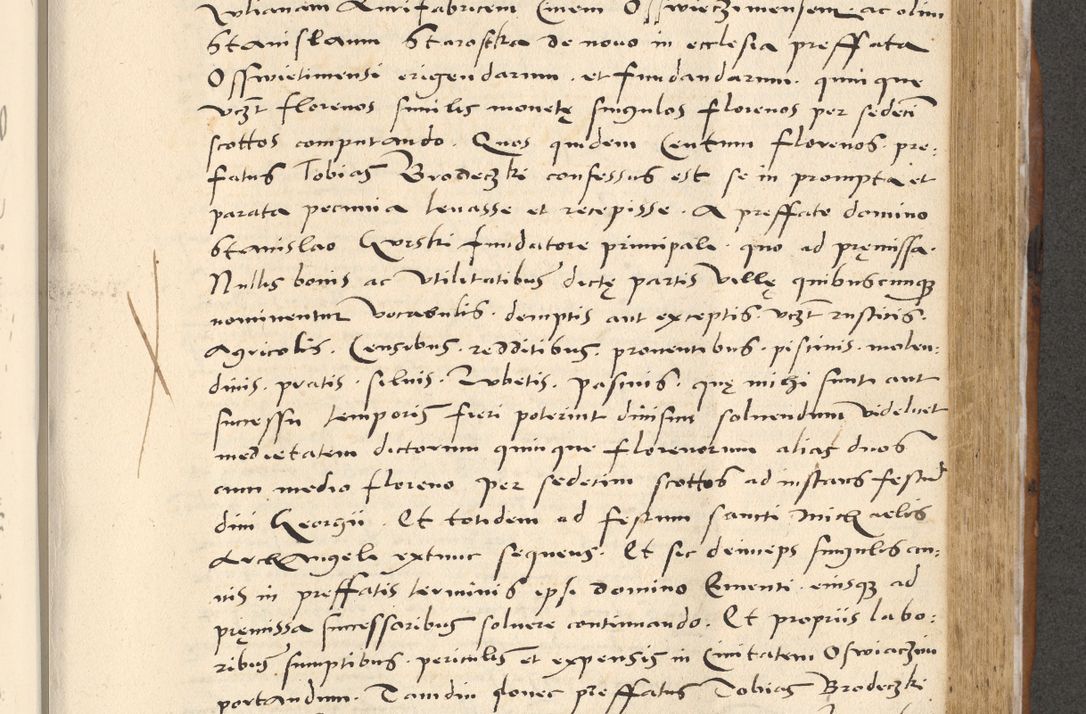 Iulianam Aurifabricem Civem Osswieczimensem ac olim
Stanislaum Starostka de novo in ecclesia preffata
Osswietimensi erigendarum . et fundandarum . quinque
vczt florenos similis monetę singulos florenos per sedeci
scottos computando . Quos quidem Centum florenos . pre:
fatus Tobias Brodeczki confessus est se in prompta et
parata pecunia levasse et recepisse . A preffato domino
Stanislao Gurski fundatore principali . quo ad pręmissa .
Nullis bonis ac utilitatibus dictę partis Villę quibuscunque
nominentur vocabulis . demptis aut exceptis . vczt rusticis .
Agricolis . Censibus . redditibus . proventibus . piscinis . molen:
dinis . pratis . silvis . Rubetis . pascuis . quę michi sunt aut
successu temporis fieri poterint divisim solvendum videlicet
medietatem dictorum quinque florenorum alias duos
cum medio floreno per sedecim scottos ad instans festum
divi Georgii . Et totidem ad festum sancti Michaelis
Archangeli extunc sequens . Et sic deinceps singulis an:
nis in preffatis terminis ipsi domino Ementi . eiusque ad
pręmissa successoribus solvere continuando . Et propriis labo:
ribus sumptibus . periculis et expensis in Civitatem Oswiaczim
portandum . Tamdiu donec preffatus Tobias Brodeczki